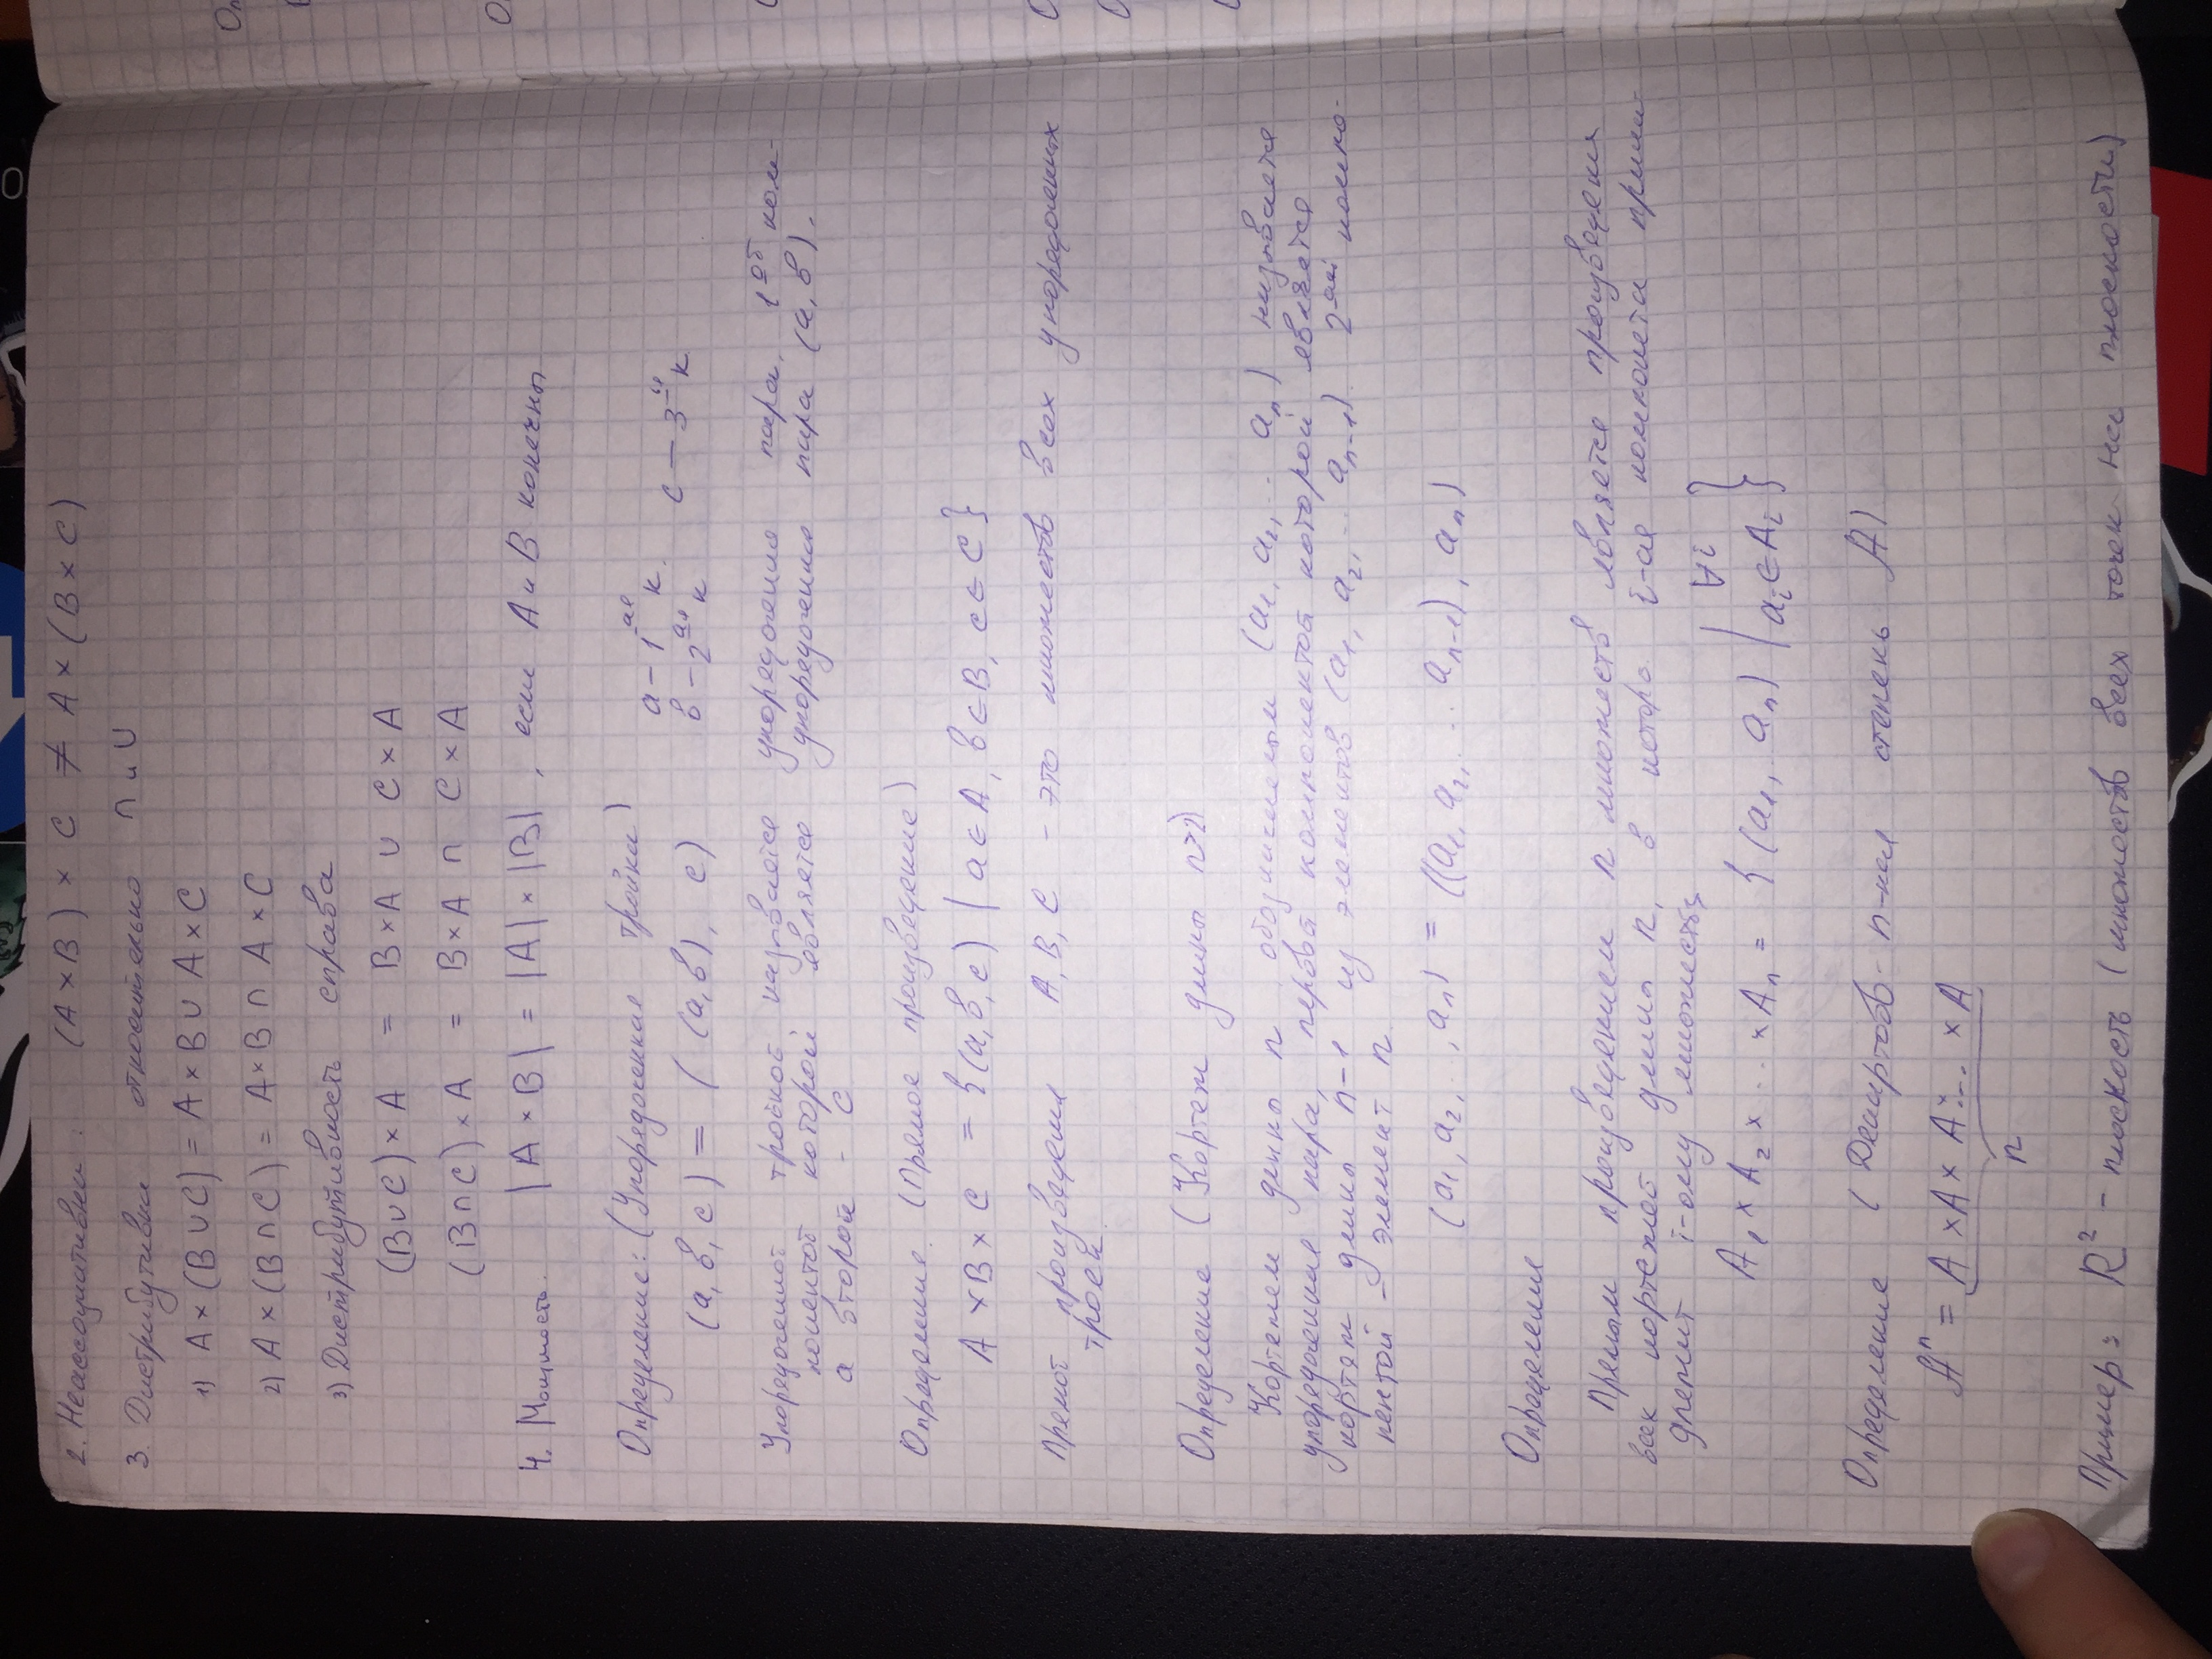 2. Неассоциативна: (A × B) × C ≠ A × (B × C)
3. Дистрибутивна относительно ∩ и ∪
1) A × (B ∪ C) = A × B ∪ A × C
2) A × (B ∩ C) = A × B ∩ A × C
3) Дистрибутивность справа
(B ∪ C) × A = B × A ∪ C × A
(B ∩ C) × A = B × A ∩ C × A
4. Мощность. |A × B| = |A| × |B|, если A и B конечны
Определение: (Упорядоченная тройка)
a – 1ая к.
(a, b, c) = ((a, b), c)
b – 2ая к
c – 3я к
Упорядоченной тройкой называется упорядочения пара, 1ой ком-
понентой которой является упорядочения пара (a, b),
а второй – C
Определение. (Прямое произведение)
A × B × C = {(a, b, c) | a ∈ A, b ∈ B, c ∈ C}
Прямой произведения A, B, C – это множеств всех упорядоченных
троек.
Определение (Кортеж длины n>2)
Кортежем длины n обозначаемым (a1, a2, .. an) называется
упорядоченная пара, первой компонентой которой является
кортеж длины n-1 из элементов (a1, a2, .. an-1). 2ой компо-
нентой – элемент n.
(a1, a2, .., an) = ((a1, a2, .. an-1), an)
Определение
Прямым произведением n множеств является произведения
всех кортежей длины n, в котор. i-ая компонета прина-
длежит i-ому множеству
A1 × A2 × .. × An = {(a1, .. an) | ∀i ai ∈ Ai}
Определение (Декартова n-ная степень A)
Aⁿ = A × A × A × ... × A
n
Пример: R² – плоскость (множеств всех точек на плоскости)